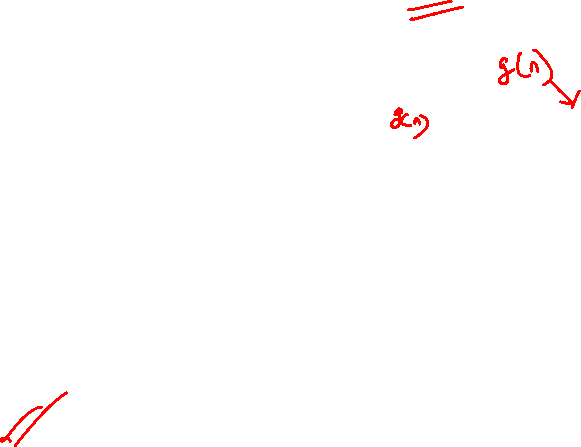 g(n)
g(n)